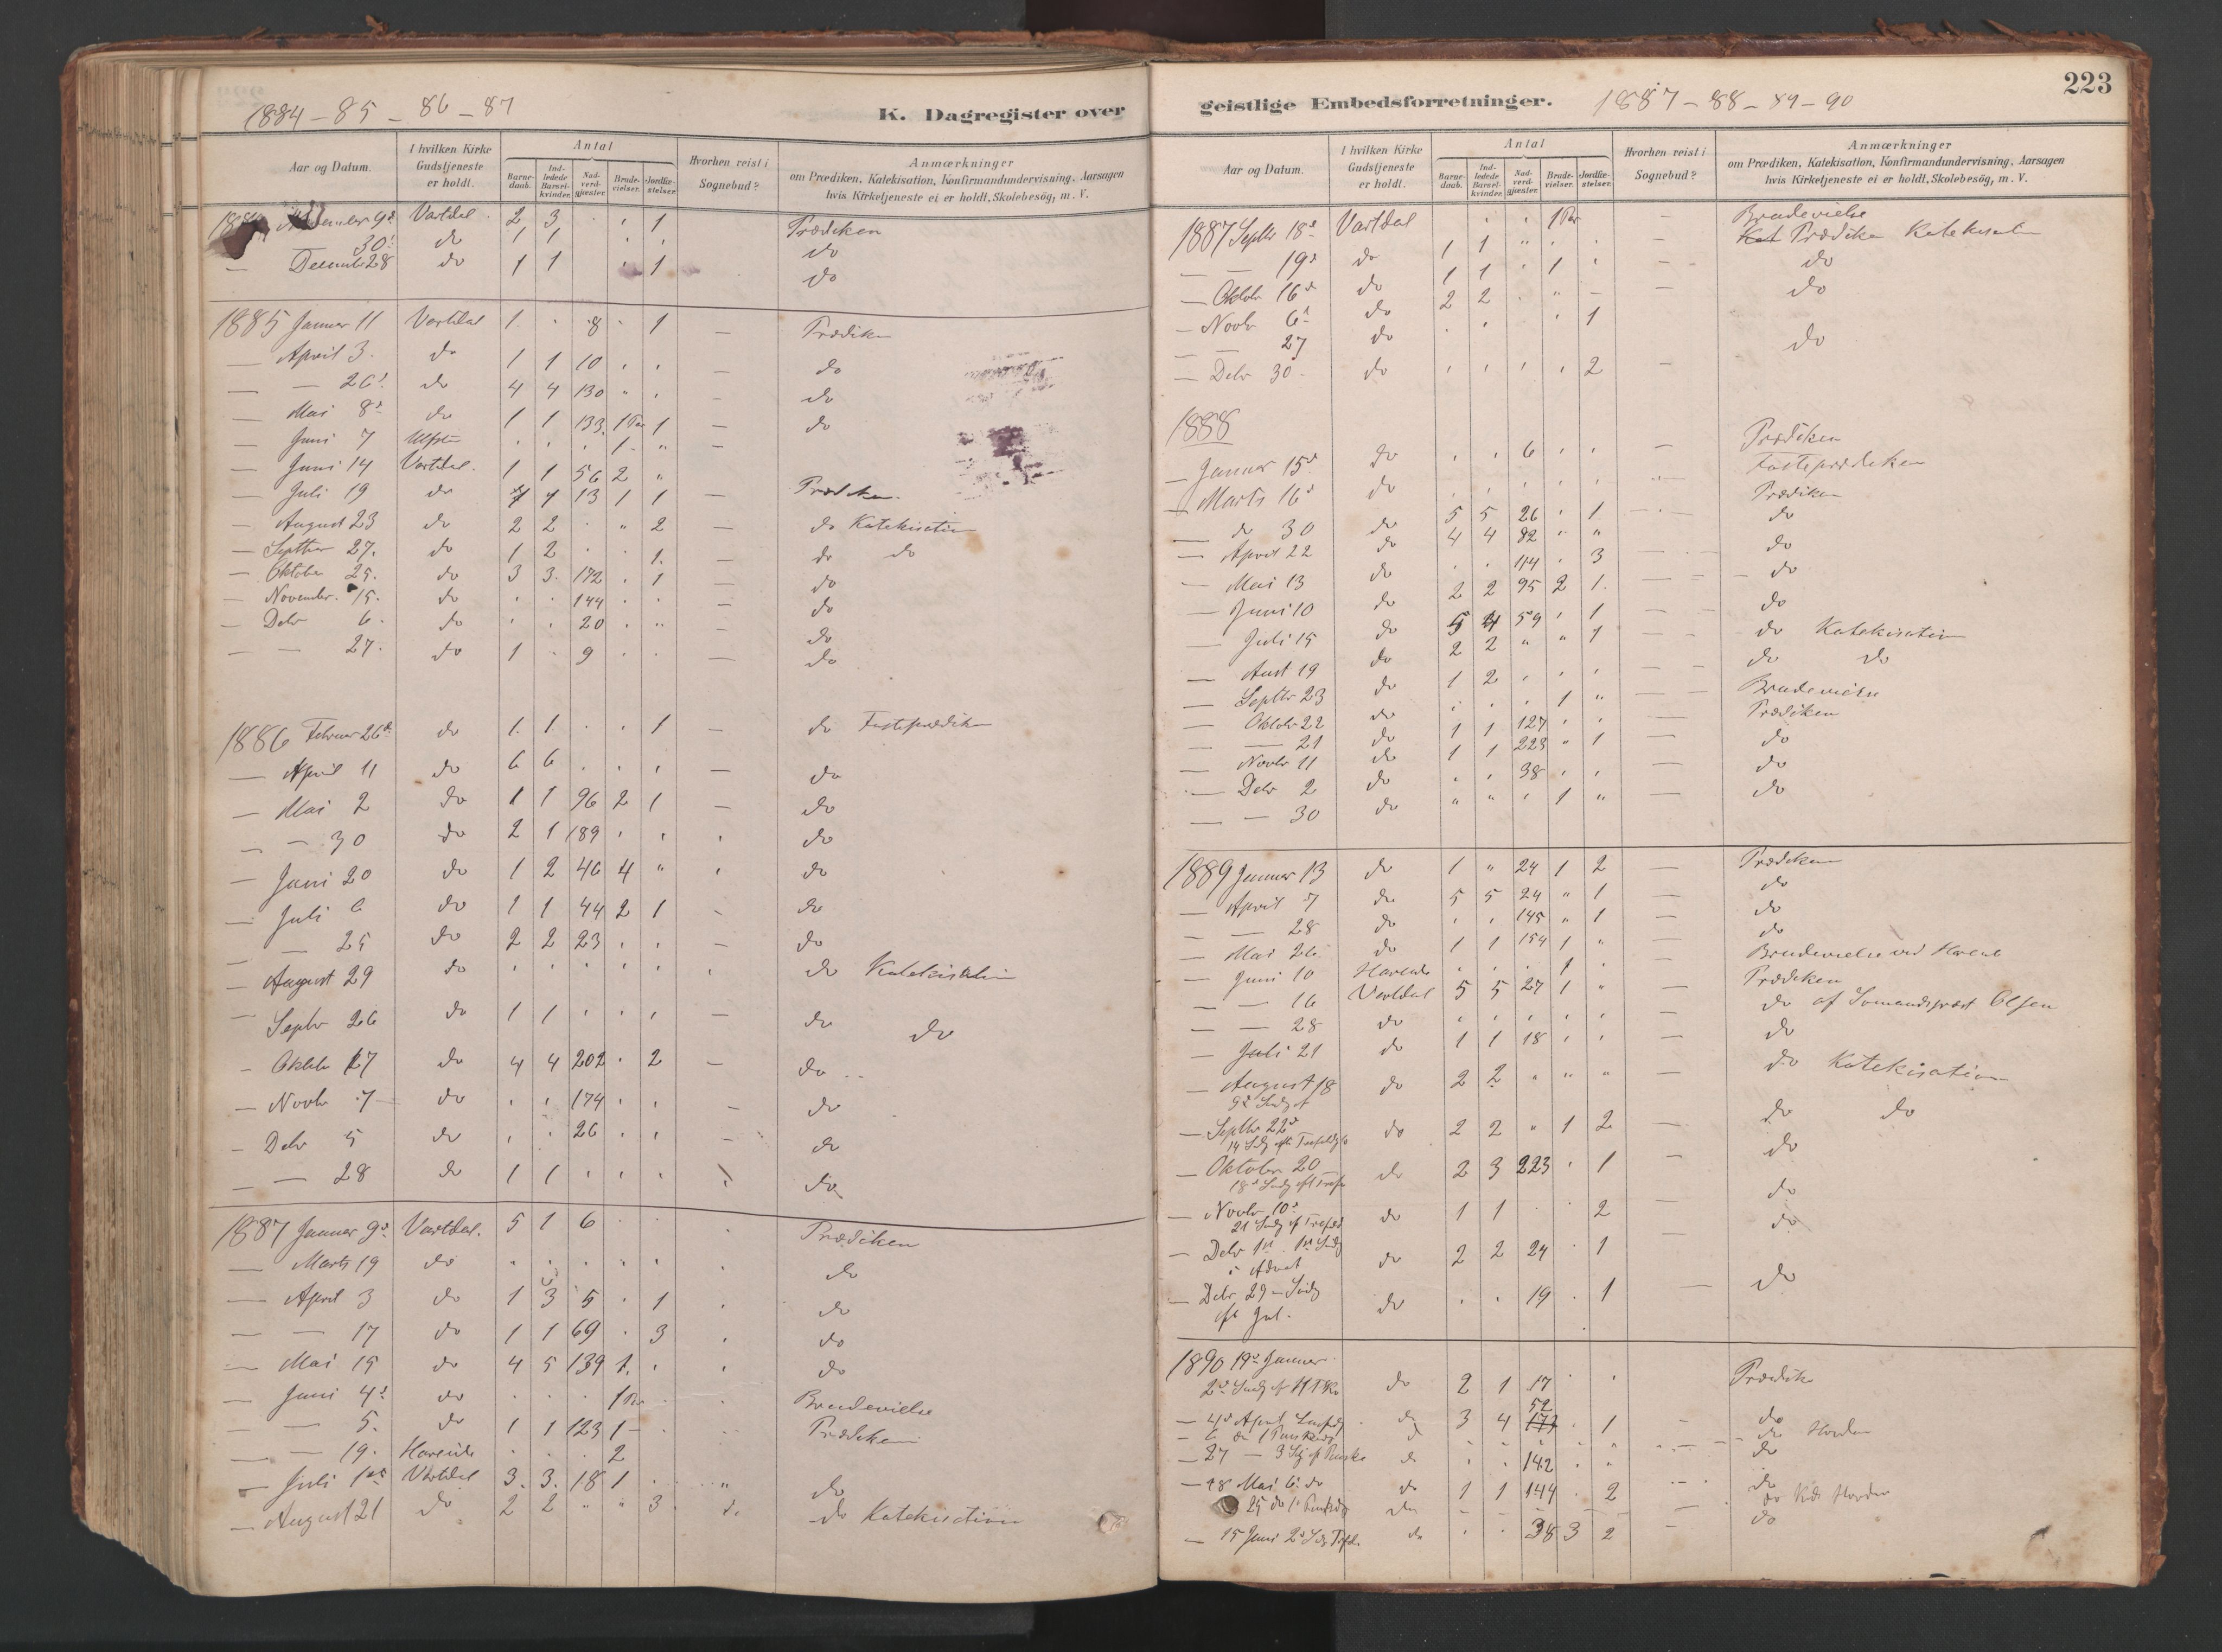 1884 - 85 - 86 - 87
K. Dagregister over
Aar og Datum.
I hvilken Kirke Gudstjeneste er holdt.
Antal
Barnedaab.
Indledede Barselkvinder.
Nadverdgjæster.
Brudevielser.
Jordfæstelser.
Hvorhen reist i Sognebud?
Anmærkninger
om Prædiken, Katekisation, Konfirmandundervisning, Aarsagen
hvis Kirketjeneste ei er holdt, Skolebesög, m. V.
9d Vartdal 2 3 . , 1 Prædiken
— 30. do 1 1 , , do
— December 28 do 1 1 , 1 do
1885 Januar 11 Vartdal 1 . 8 . 1 — Prædiken
— April 3. do 1 1 10 , , — do
— — 26. do 4 4 130 " , — do
— Mai 8d do 1 1 133. 1 Par 1 — do
— Juni 7 , , , 1 - " —
— Juni 14 Vartdal. 1 1 56 2 "
— Juli 19 do 7 13 1 1 — Prædiken.
— August 23 do 2 2 . " 2 — do Katekisation
— Septber 27. do 1 2 . . 1. — do do
— Oktober 25. do 3 3. 172 . 1 — do
— November. 15. do , , 144 . . — do
— Debr 6. do , , 20 . " — do
— — 27. do 1 . 9 . . — do
1886 Februar 26d do 1. 1. . . 1 — do Fasteprædiken
— April 11 do 6 6 . . , — do
— Mai 2 do 1 1 96 2 1 — do
— — 30 do 2 1 189 , , , do
— Juni 20 do 1 2 46 4 " , do
— Juli 6 do 1 1 44 2 1 - do
— — 25 do 2 2 23 , , - do
— August 29 do , , , , , , do Katekisation
— Septbr 26 do 1 1 , , , — do do
— Oktbr 17 do 4 4 202 . 2 — do
— Novbr 7 do , , 174 , , — do
— Debr 5 do , , 26 , , - do
— — 28 do 1 1 , , , do
1887 Januar 9d Vartdal. 5 1 6 . . . Prædiken
— Marts 19 do . . . . . . do
— April 3 do 1 3 5 . 1 , do
— — 17 do 1 1 69 . 3 , do
— Mai 15 do 4 5 139 1. , , do
— Juni 4d do . . . 1 Par . . Brudevielse
— — 5. do 1 1 123 1 - . Prædiken
— — 19. Hareide . . . 2
— Juli 1ste Vartdal 3. 3. 18 1 . " do
— August 21 do 2 2 " " 3 do Katekisation
223
geistlige Embedsforretninger. 1887 - 88 - 89 - 90
Aar og Datum.
I hvilken Kirke Gudstjeneste er holdt.
Antal
Barnedaab.
Indledede Barselkvinder.
Nadverdgjæster.
Brudevielser.
Jordfæstelser.
Hvorhen reist i Sognebud?
Anmærkninger
om Prædiken, Katekisation, Konfirmandundervisning, Aarsagen
hvis Kirketjeneste ei er holdt, Skolebesög, m. V.
1887 Septbr 18d Vartdal , , 1 Par — Brudevielse
— — 19d do 1 1 " , , — Kat Prædiken Katekisation
— Oktbr 16d do 1 1 , 1 , — do
— Novbr 6d do 2 2 . " — - do
— — 27 do . , , 1
— Debr 30 - do , , , , 2 — do
1888
— Januar 15d do , , 6 , , — Prædiken
— Marts 16d do , , , , , — Fasteprædiken
— do 30 do 5 5 26 , 1 — Prædiken
— April 22 do 4 4 82 , " do
— Mai 13 do . . 114 . 3 — do
— Juni 10 do 2 2 95 2 1. — do
— Juli 15 do 5 4 59 , 1 — do
— Aust 19 do 2 2 " " 1 — do Katekisation
— Septbr 23 do 1 2 , , , — do do
— Oktobr 22 do , . , 1 " — Brudevielse
— — 21 do 1 1 127 , , Prædiken
— Novbr 11 do 1 1 223 " 1 — do
— Debr 2 do , , 38 , , — do
— — 30 do " " , 1 " — do
1889 Januar 13 do 1 " 24 1 2 — Prædiken
— April 7 do 5 5 24 " 1 — do
— — 28 do , , 145 " 1 — do
— Mai 26. do 1 1 154 1 " — do
— Juni 10 Hareide . . . 1 . — Brudevielse ved Hareid
— — 16 Vartdal 5 5 27 1 " — Prædiken
— — 28 do , , , , , do af Sømandsprest Olsen
— Juli 21 do 1 1 18 , , — do
— August 18 do 2 2 " " " — do Katekisation
— Septbr 22d do 2 2 " 1 2 — do do
— Oktober 20 do 2 3 223 , 1 - do
— Novbr 10d do 1 1 . . 2 — do
— Debr 1ste 1ste Søndg i Advent do 2 2 24 . 1 — do
— Debr 29 - Søndg eft Jul. do . . 19 . 1 — do
1890 19d Januar
do 2 1 17 . , Prædiken
— 4d April do 3 4 52 . 1 - do
— 27 — 3 do . . 142 . . do
— Mai 6. do do 1 1 144 . 2 do
25 do do
— 15 Juni do . . 38 3 2 — do